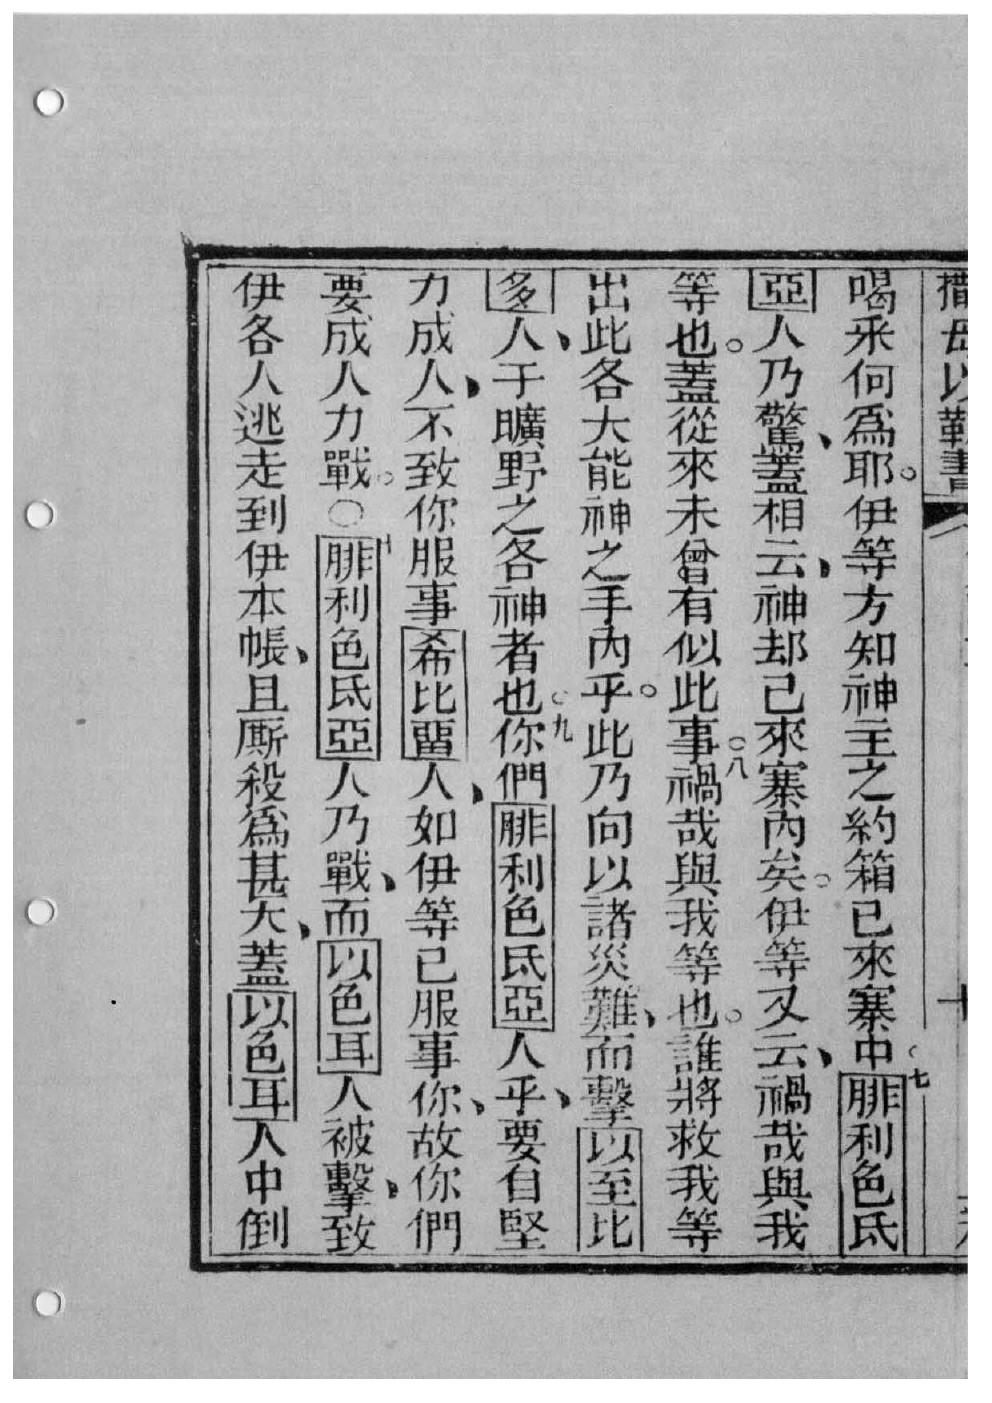 撒母以勒書
喝采何爲耶。伊等方知神主之約箱已來寨中。七腓利色氐
亞人乃驚、蓋相云、神却已來寨內矣。伊等又云、禍哉與我
等也。蓋從來未曾有似此事。八禍哉與我等也。誰將救我等
出此各大能神之手內乎。此乃向以諸災難、而擊以至比
多人、于曠野之各神者也。九你們腓利色氐亞人乎、要自堅
力成人、不致你服事希比畱人、如伊等已服事你、故你們
要成人力戰。○十腓利色氐亞人乃戰、而以色耳人被擊、致
伊各人逃走到伊本帳、且厮殺爲甚大、蓋以色耳人中倒